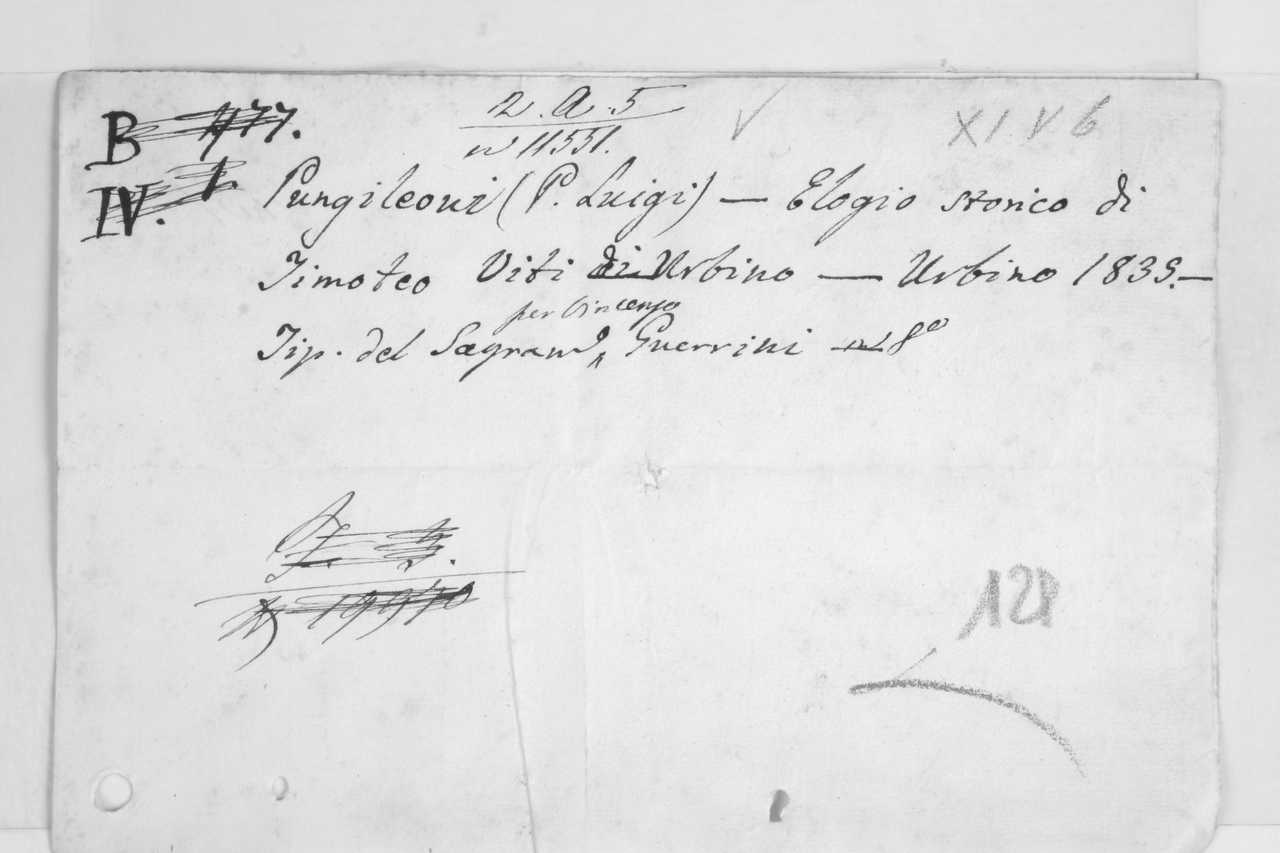 B 477. 2. A. 5 XI V 6
nº 11551.
IV. 1. Pungileoni (P. Luigi) — Elogio storico di
Timoteo Viti di Urbino — Urbino 1835.—
per Vincenzo
Tip. del Sagramº Guerrini in 8º
128